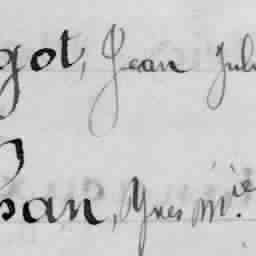 got, Jean Jul
san, Yves M.ie